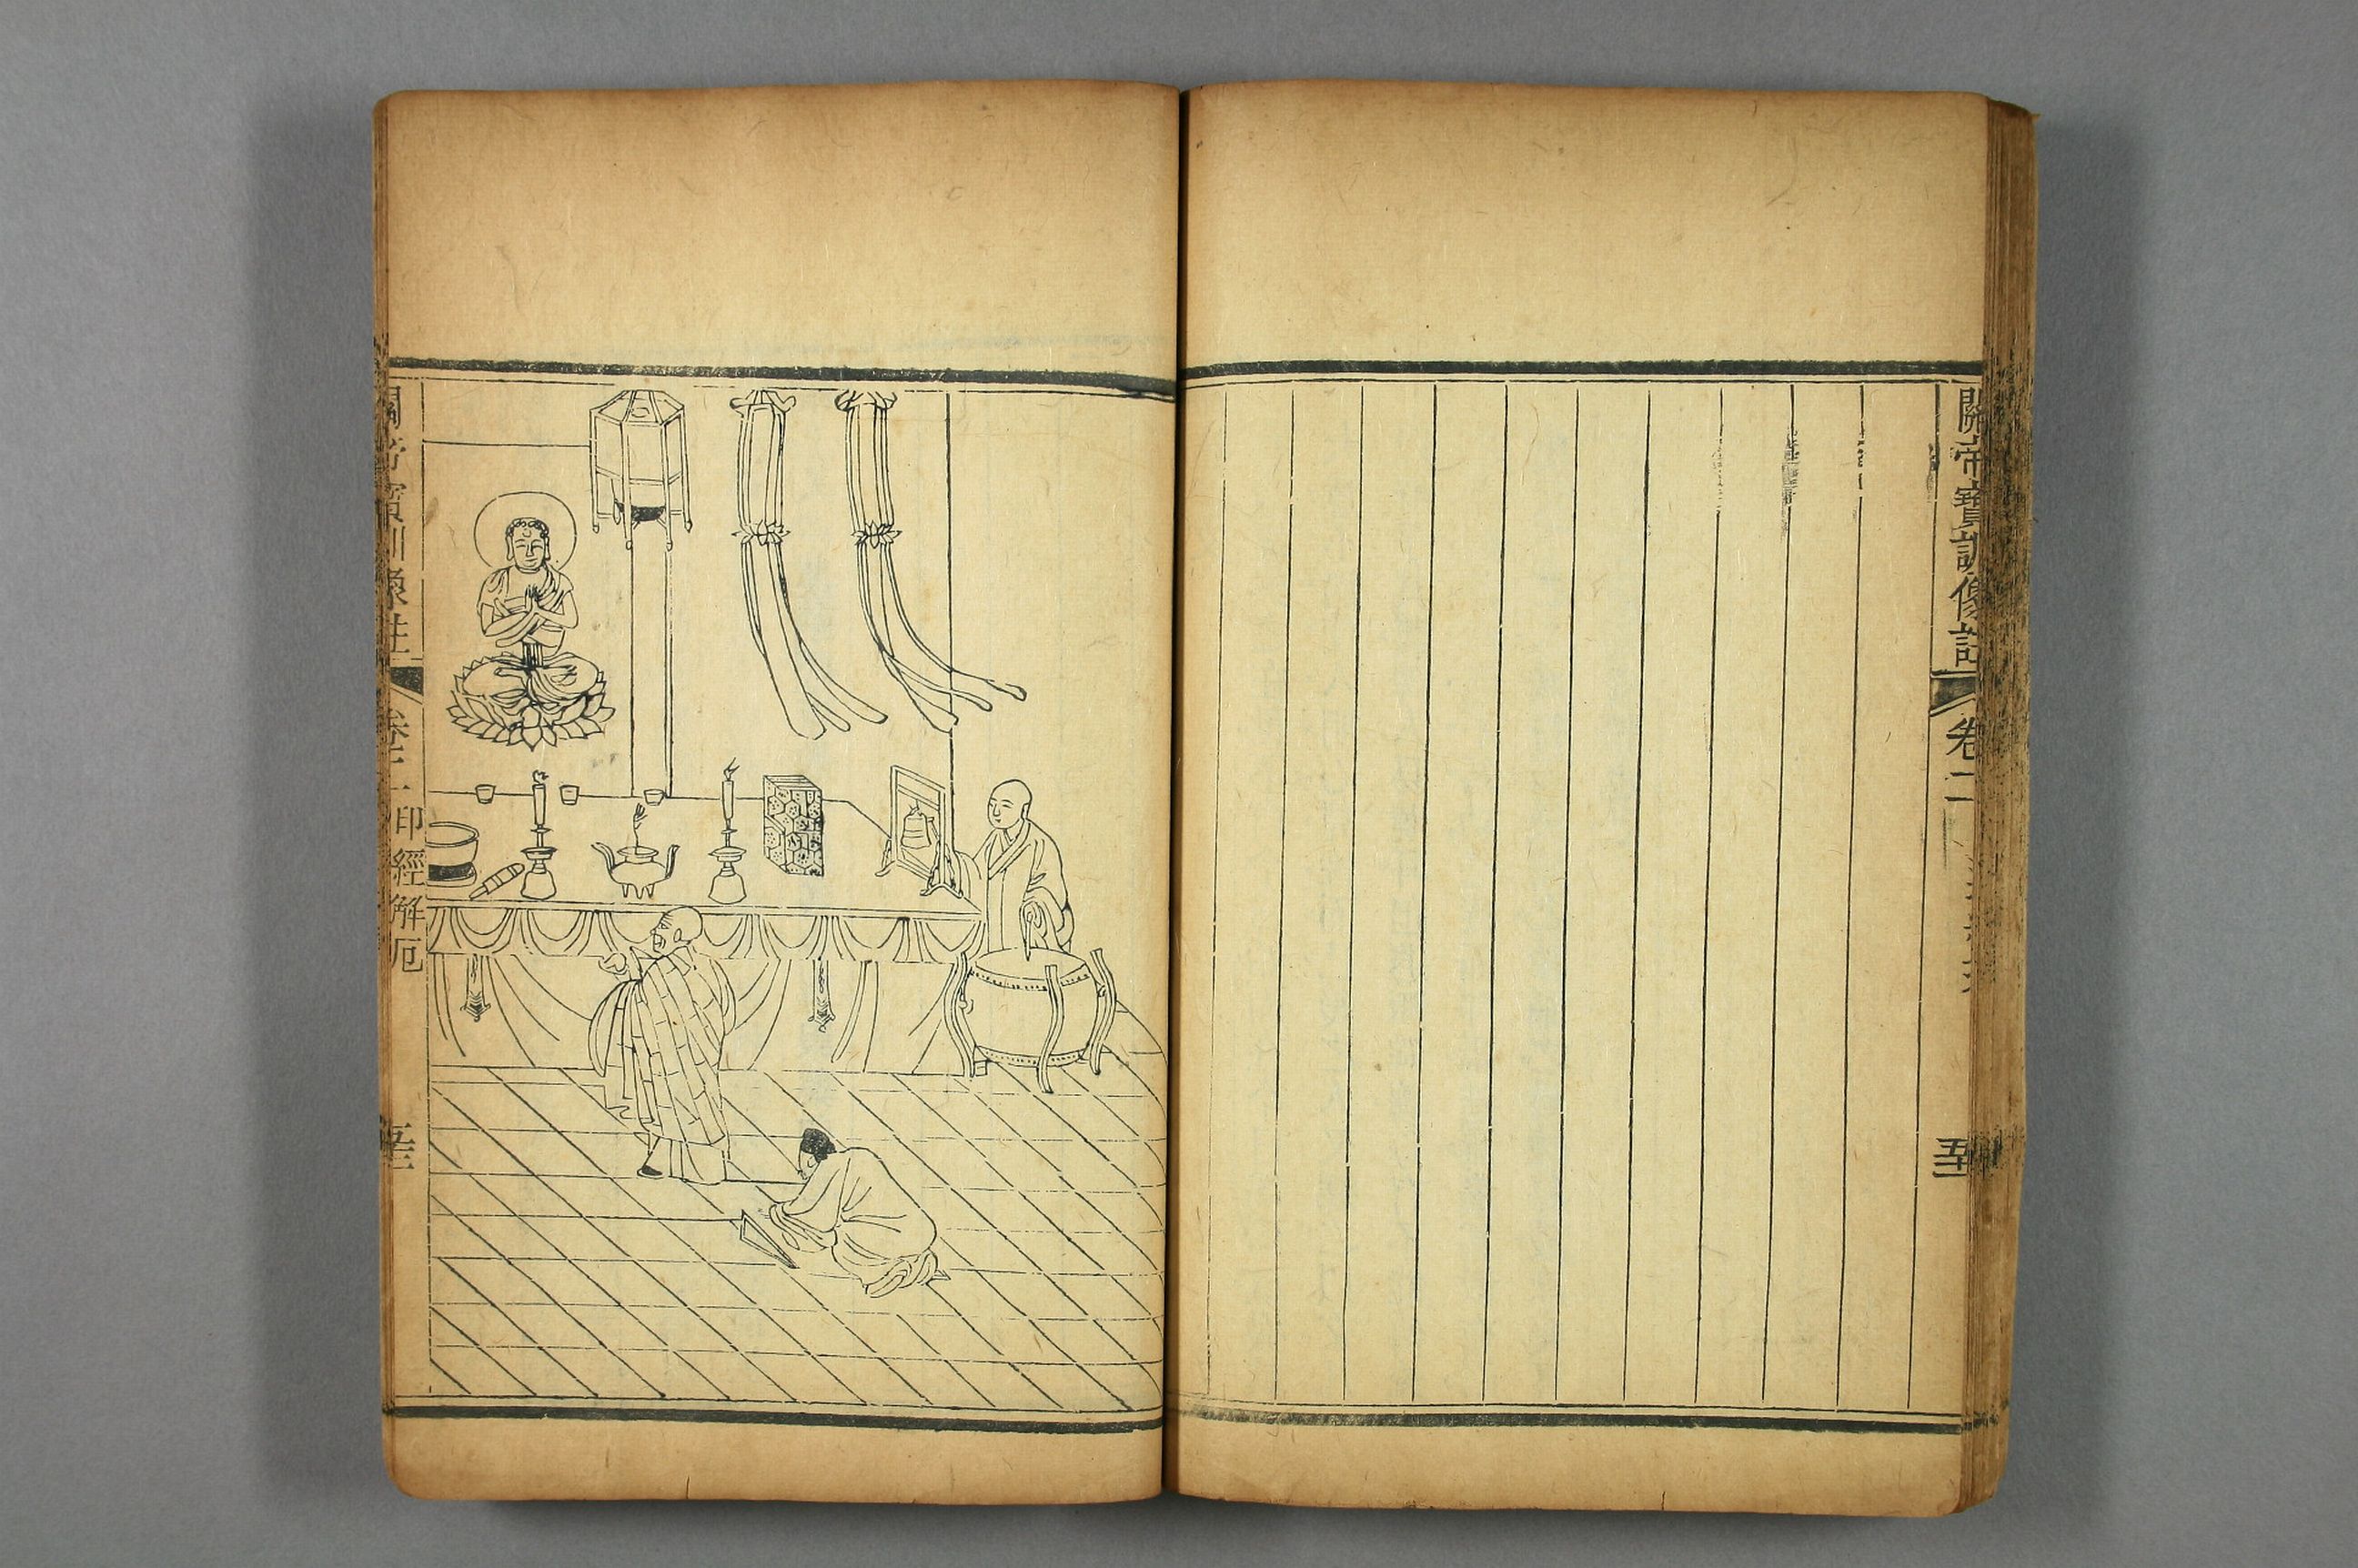 關帝寶訓像註 卷二
關帝寶訓像註 卷二 印經解厄